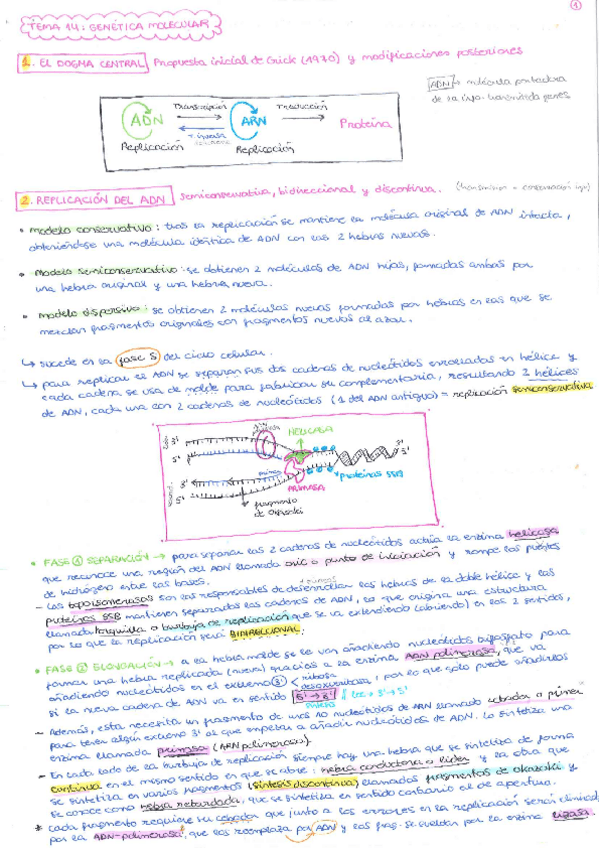 1
TEMA 14: GENÉTICA MOLECULAR
1. EL DOGMA CENTRAL Propuesta inicial de Crick (1970) y modificaciones posteriores
ADN → molécula portadora
de la info. transmitida genes
Transcripción Traducción
ADN ARN Proteína
Replicación Replicación
2. REPLICACIÓN DEL ADN Semiconservativa, bidireccional y discontinua.
• modelo conservativo: tras la replicación se mantiene la molécula original de ADN intacta,
obteniéndose una molécula idéntica de ADN con las 2 hebras nuevas.
• Modelo semiconservativo: se obtienen 2 moléculas de ADN hijas, formadas ambas por
una hebra original y una hebra nueva.
• modelo dispersivo: se obtienen 2 moléculas nuevas formadas por hebras en las que se
mezclan fragmentos originales con fragmentos nuevos al azar.
↳ sucede en la fase S del ciclo celular.
↳ para replicar el ADN se separan sus dos cadenas de nucleótidos enrolladas en hélice y
cada cadena se usa de molde para fabricar su complementaria, resultando 2 hélices
de ADN, cada una con 2 cadenas de nucleótidos (1 del ADN antiguo) = replicación semiconservativa
HELICASA
3' 5'
proteínas SSB
PRIMASA
fragmento
de Okazaki
• FASE 1 SEPARACIÓN → para separar las 2 cadenas de nucleótidos actúa la enzima helicasa
que reconoce una región del ADN llamada oric o punto de iniciación y rompe los puentes
de hidrógeno entre las bases.
- Las topoisomerasas son las responsables de desenrollar las hebras de la doble hélice y las
proteínas SSB mantienen separadas las cadenas de ADN, lo que origina una estructura
llamada horquilla o burbuja de replicación que se va extendiendo (abriendo) en los 2 sentidos,
por lo que la replicación será BIDIRECCIONAL.
• FASE 2 ELONGACIÓN → a la hebra molde se le van añadiendo nucleótidos trifosfato para
formar una hebra replicada (nueva) gracias a la enzima ADN polimerasa, que va
añadiendo nucleótidos en el extremo 3' ribosa desoxirribosa, por lo que solo puede añadirlos
si la nueva cadena de ADN va en sentido 5' → 3'
- Además, esta necesita un fragmento de unos 10 nucleótidos de ARN llamado cebador o primer
para tener algún extremo 3' al que empezar a añadir nucleótidos de ADN. Lo sintetiza una
enzima llamada primasa (ARN polimerasa).
- En cada lado de la burbuja de replicación siempre hay una hebra que se sintetiza de forma
continua en el mismo sentido en que se abre: hebra conductora o líder y la otra que
se sintetiza en varios fragmentos (síntesis discontinua) llamados fragmentos de okazaki y
se conoce como hebra retardada, que se sintetiza en sentido contrario al de apertura.
* cada fragmento requiere su cebador que junto a los errores en la replicación serán eliminados
por la ADN-polimerasa, que los reemplaza por ADN y los frag. se sueldan por la enzima ligasa.